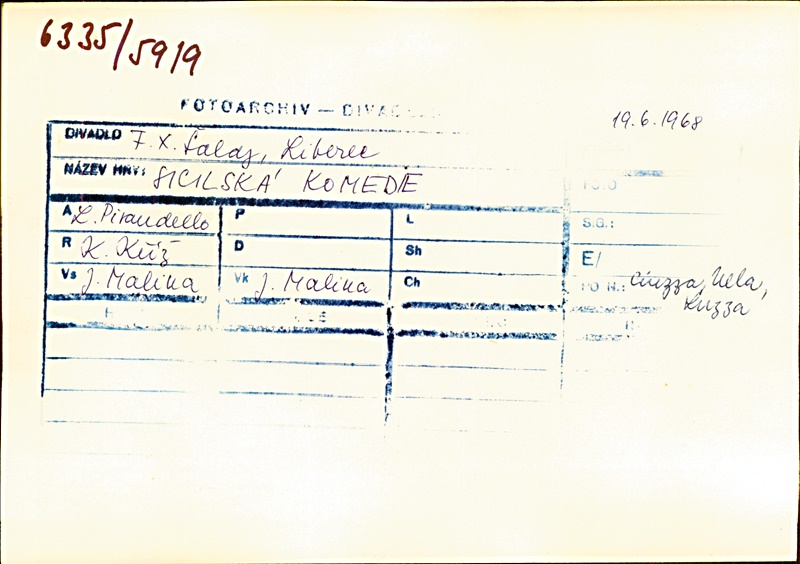 6335/5919
FOTOARCHIV — DIVAD
19.6.1968
DIVADLO F. X. Šaldy, Liberec
NÁZEV HRY: SICILSKÁ KOMEDIE
FOTO
A L. Pirandello P L S.G.:
R K. Kříž D Sh E/
Vs J. Malina Vk J. Malina Ch PO N.: Ciuzza, Nela,
Luzza